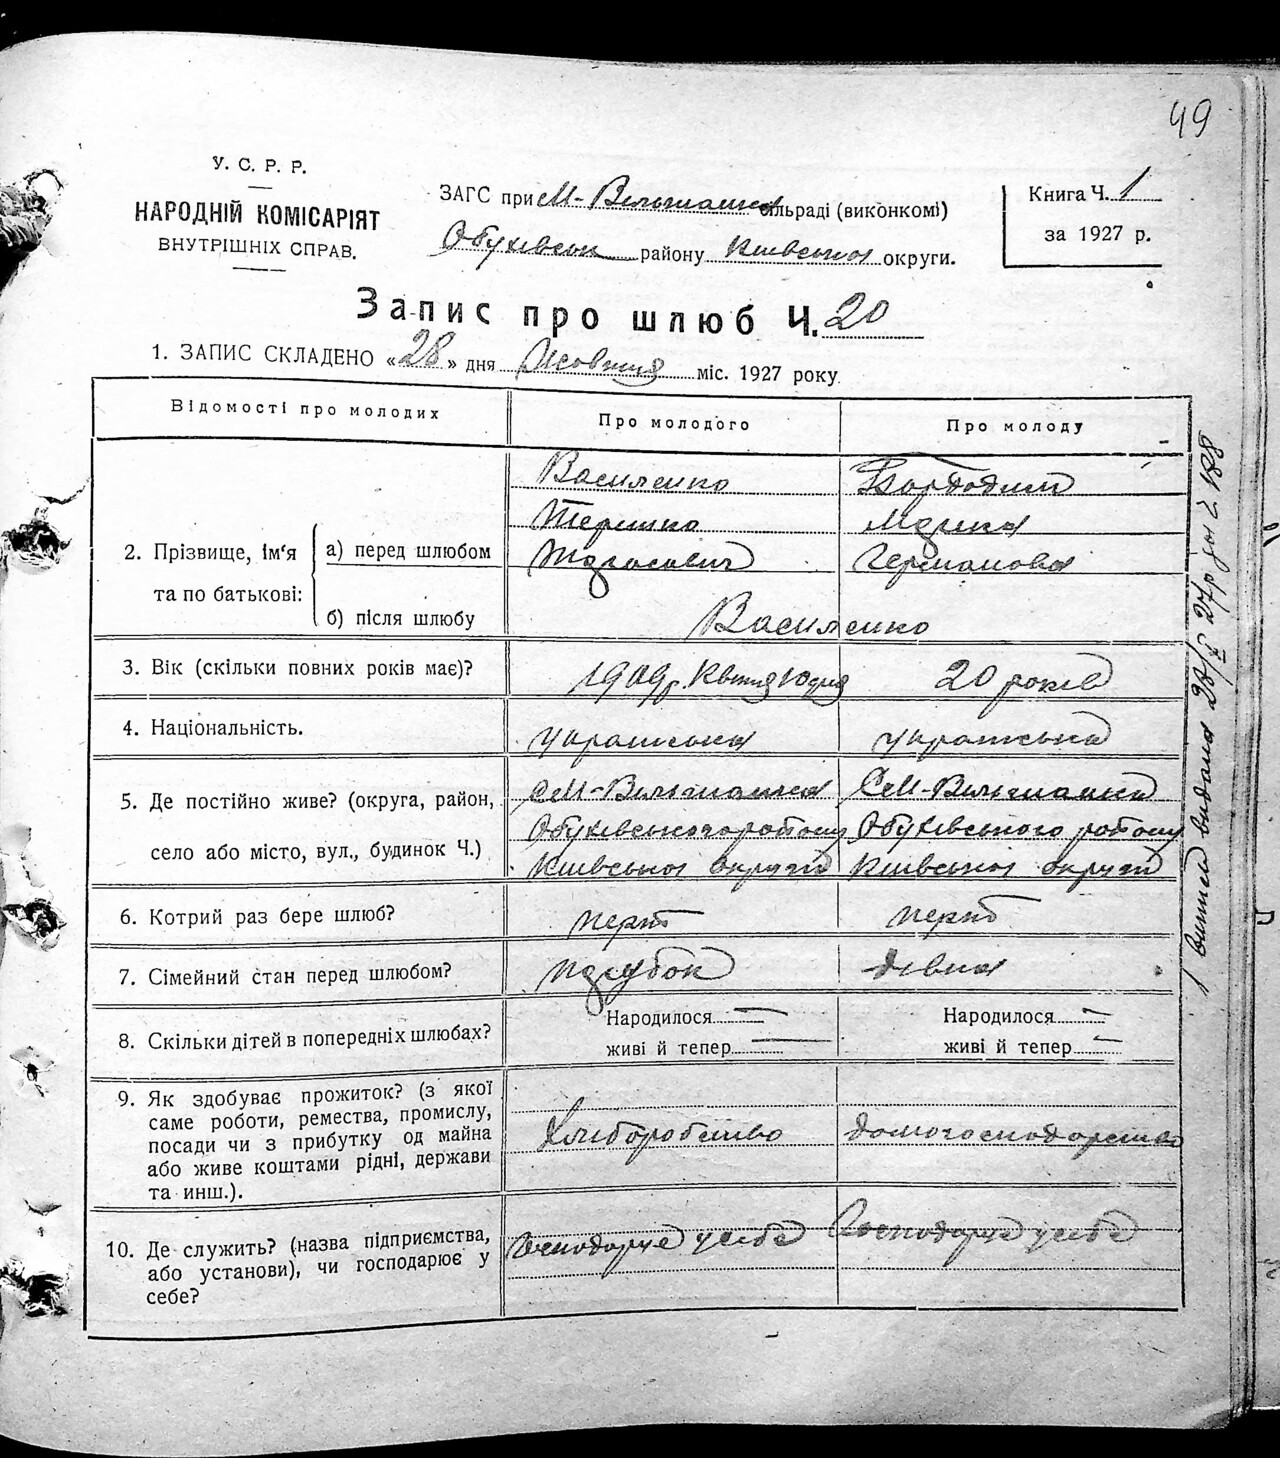 49
У. С. Р. Р.
НАРОДНІЙ КОМІСАРІЯТ
ВНУТРІШНІХ СПРАВ.
ЗАГС при М-Вільшанка сільраді (виконкомі)
Обухівськ району Київської округи.
Книга Ч. 1
за 1927 р.
Запис про шлюб Ч. 20
1. ЗАПИС СКЛАДЕНО «28» дня Жовтня міс. 1927 року
Відомості про молодих
Про молодого
Про молоду
2. Прізвище, ім'я
та по батькові:
а) перед шлюбом
б) після шлюбу
Василенко
Терешко
Тарасович
Бордодим
Марина
Германова
Василенко
3. Вік (скільки повних років має)?
1909р. Квітня 10 дня
20 років
4. Національність.
українська
українська
5. Де постійно живе? (округа, район,
село або місто, вул., будинок Ч.)
С М-Вільшанка
Обухівського району
Київської округи
С М-Вільшанка
Обухівського району
Київської округи
6. Котрий раз бере шлюб?
перш
перш
7. Сімейний стан перед шлюбом?
парубок
дівка
8. Скільки дітей в попередніх шлюбах?
Народилося —
живі й тепер —
Народилося —
живі й тепер —
9. Як здобуває прожиток? (з якої
саме роботи, ремества, промислу,
посади чи з прибутку од майна
або живе коштами рідні, держави
та инш.).
Хліборобство
домогосподарство
10. Де служить? (назва підприємства,
або установи), чи господарює у
себе?
Господарує у себе
Господарує у себе
1 витяг видана 28/X 27р